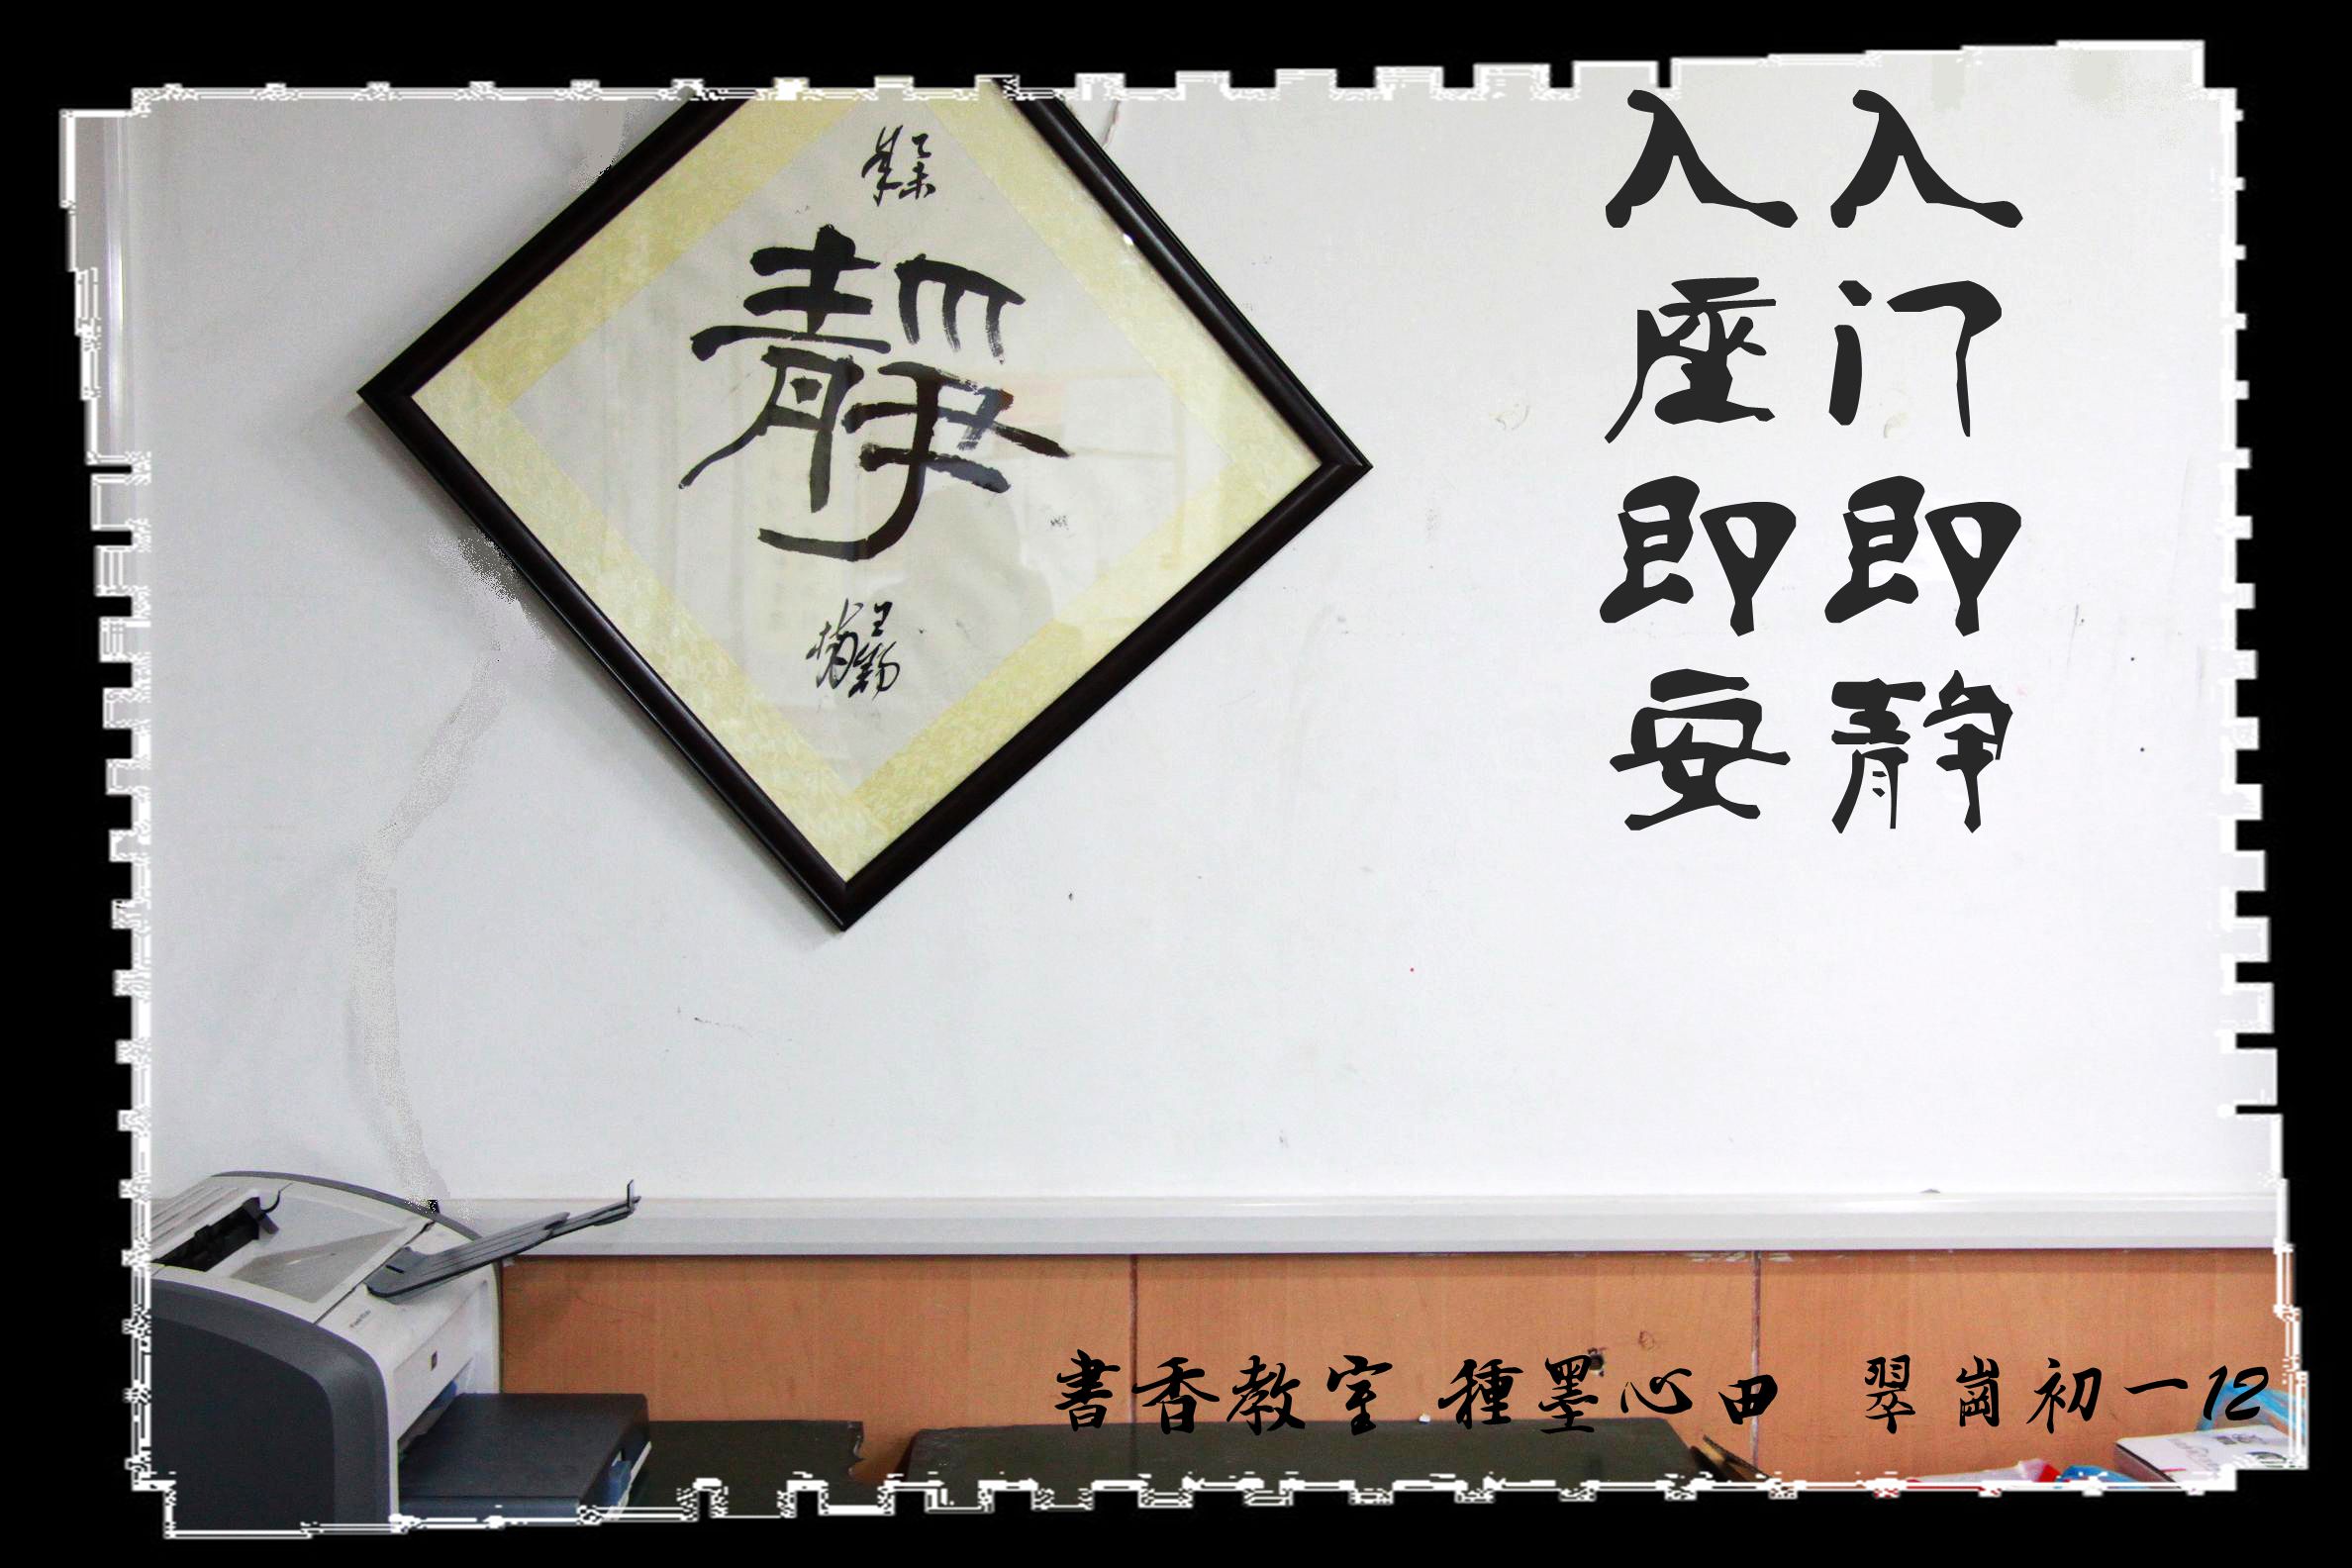 入门即静
入座即安
靜
書香教室 種墨心田 翠崗初一12